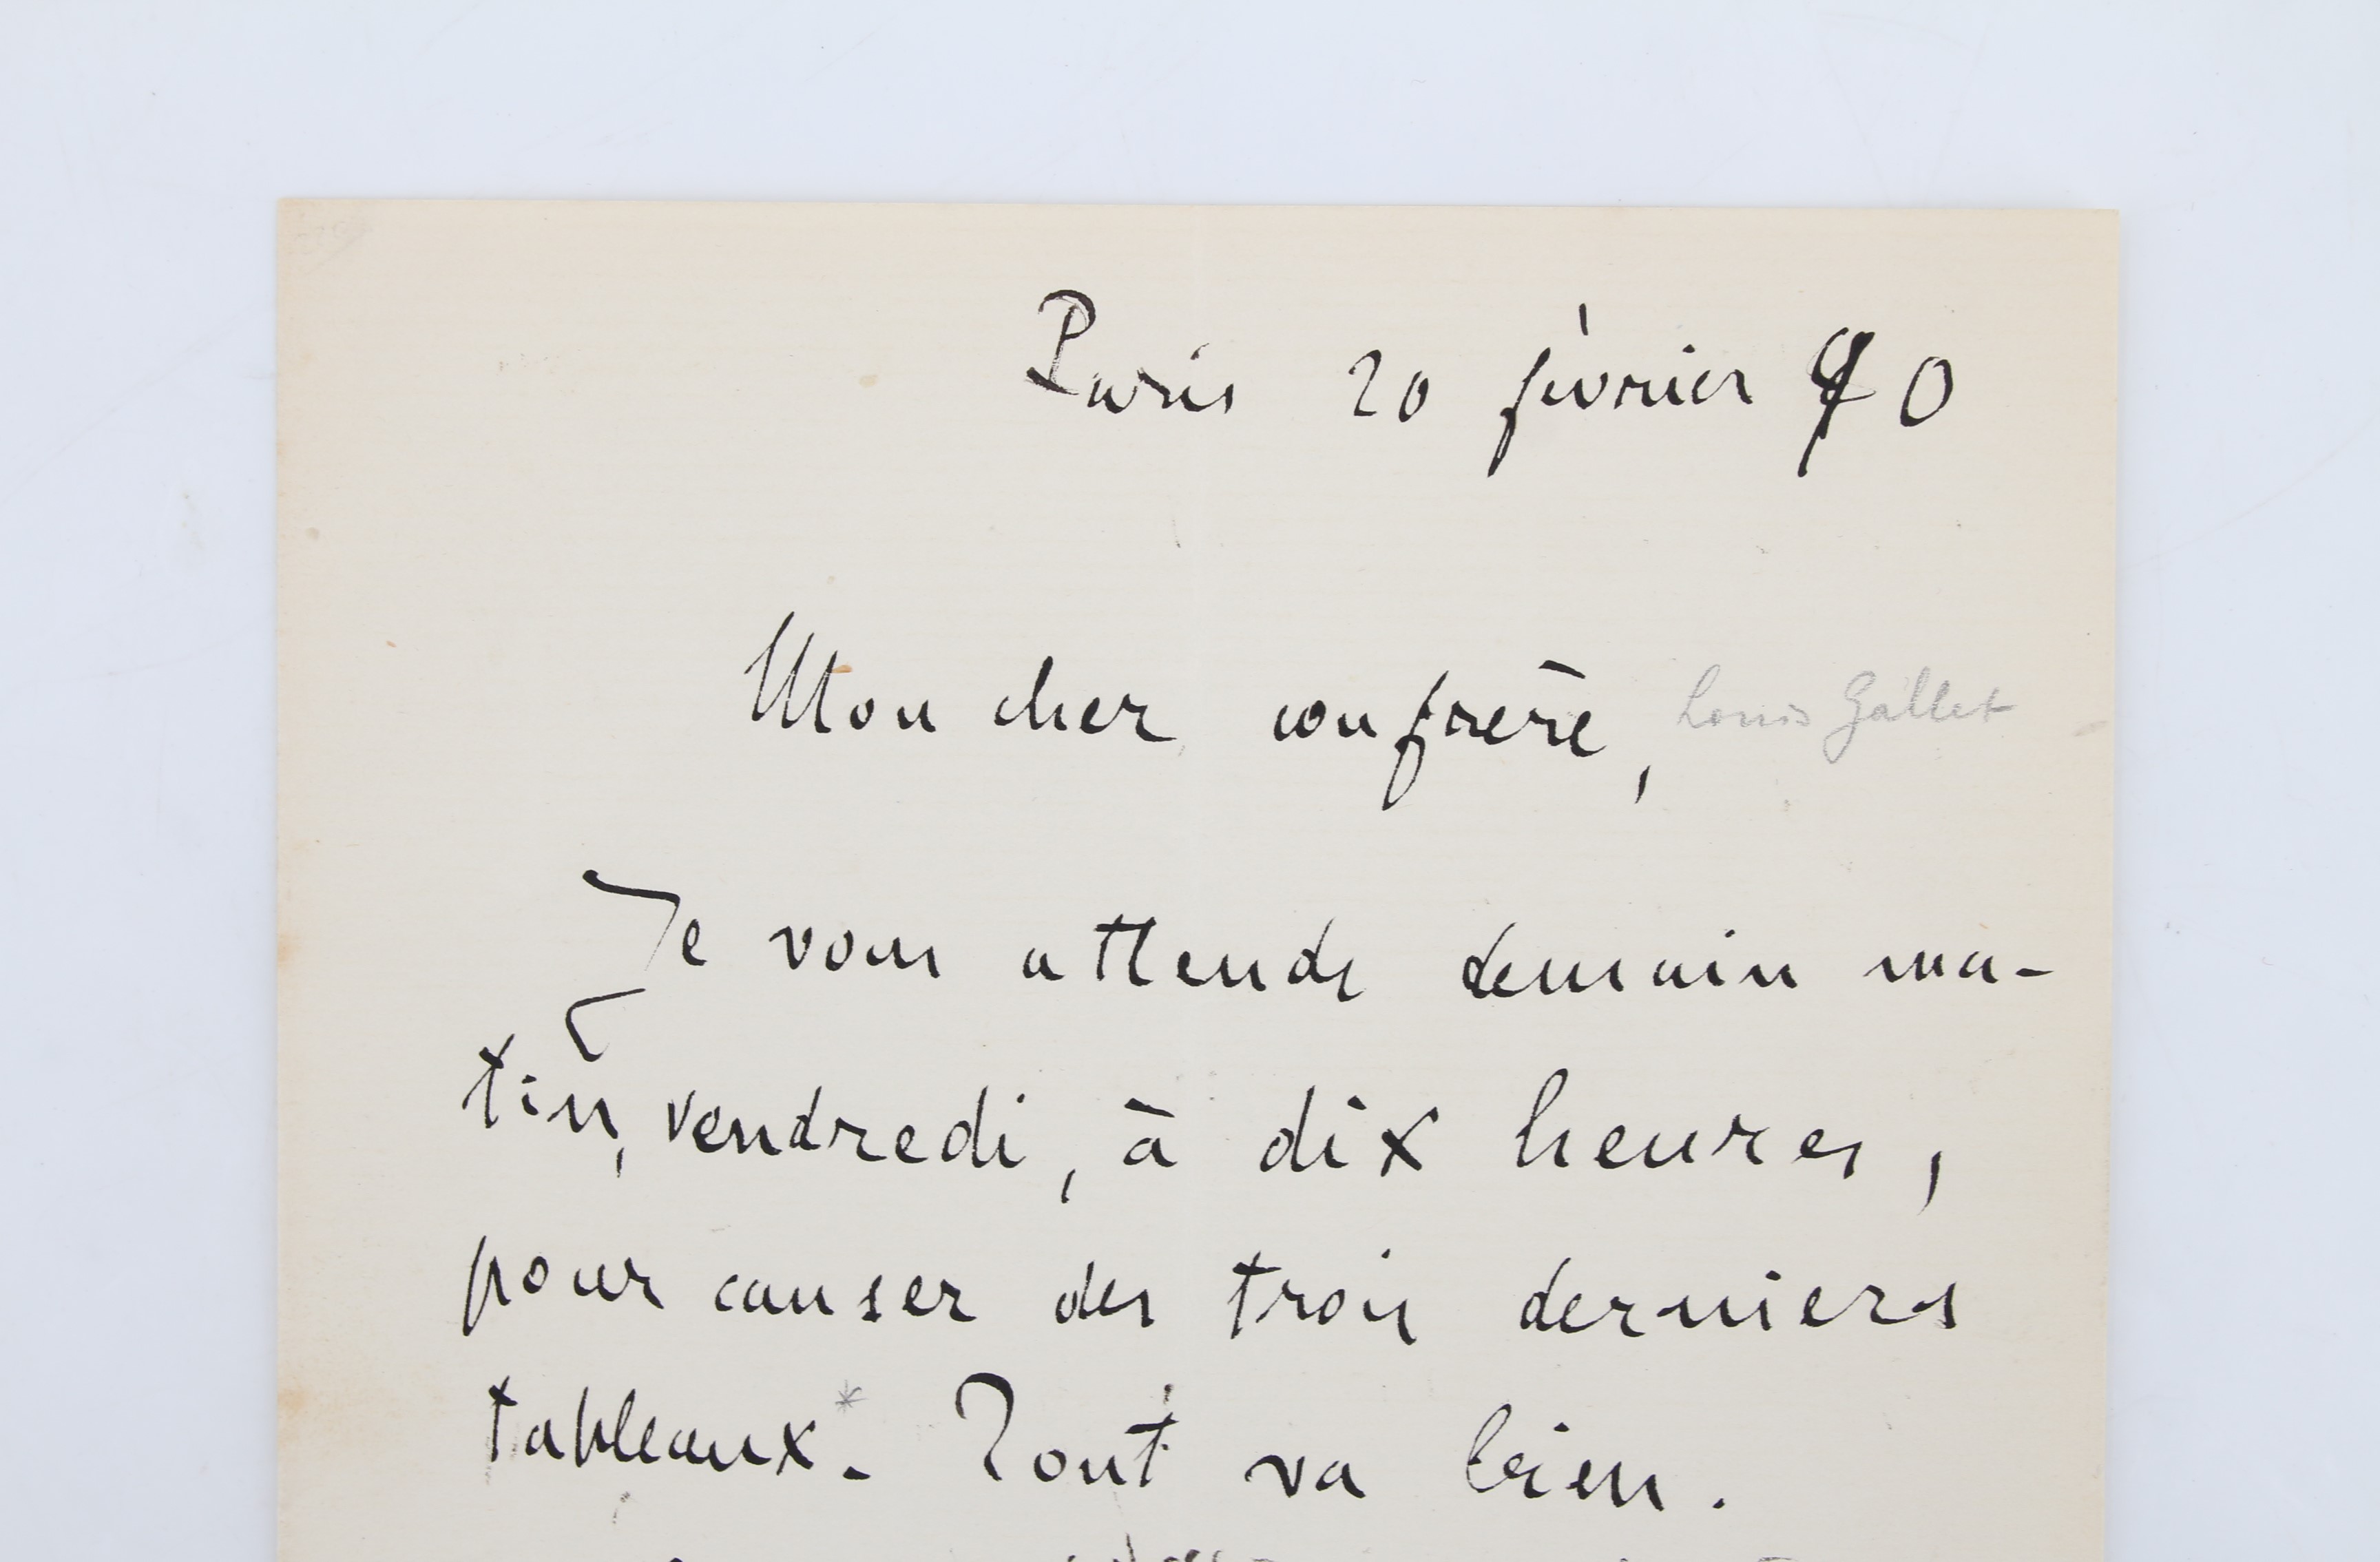 Paris 20 février 90
Mon cher confrère, Louis Gallet
Je vous attends demain ma-
tin, vendredi, à dix heures,
pour causer des trois derniers
tableaux*. Tout va bien.